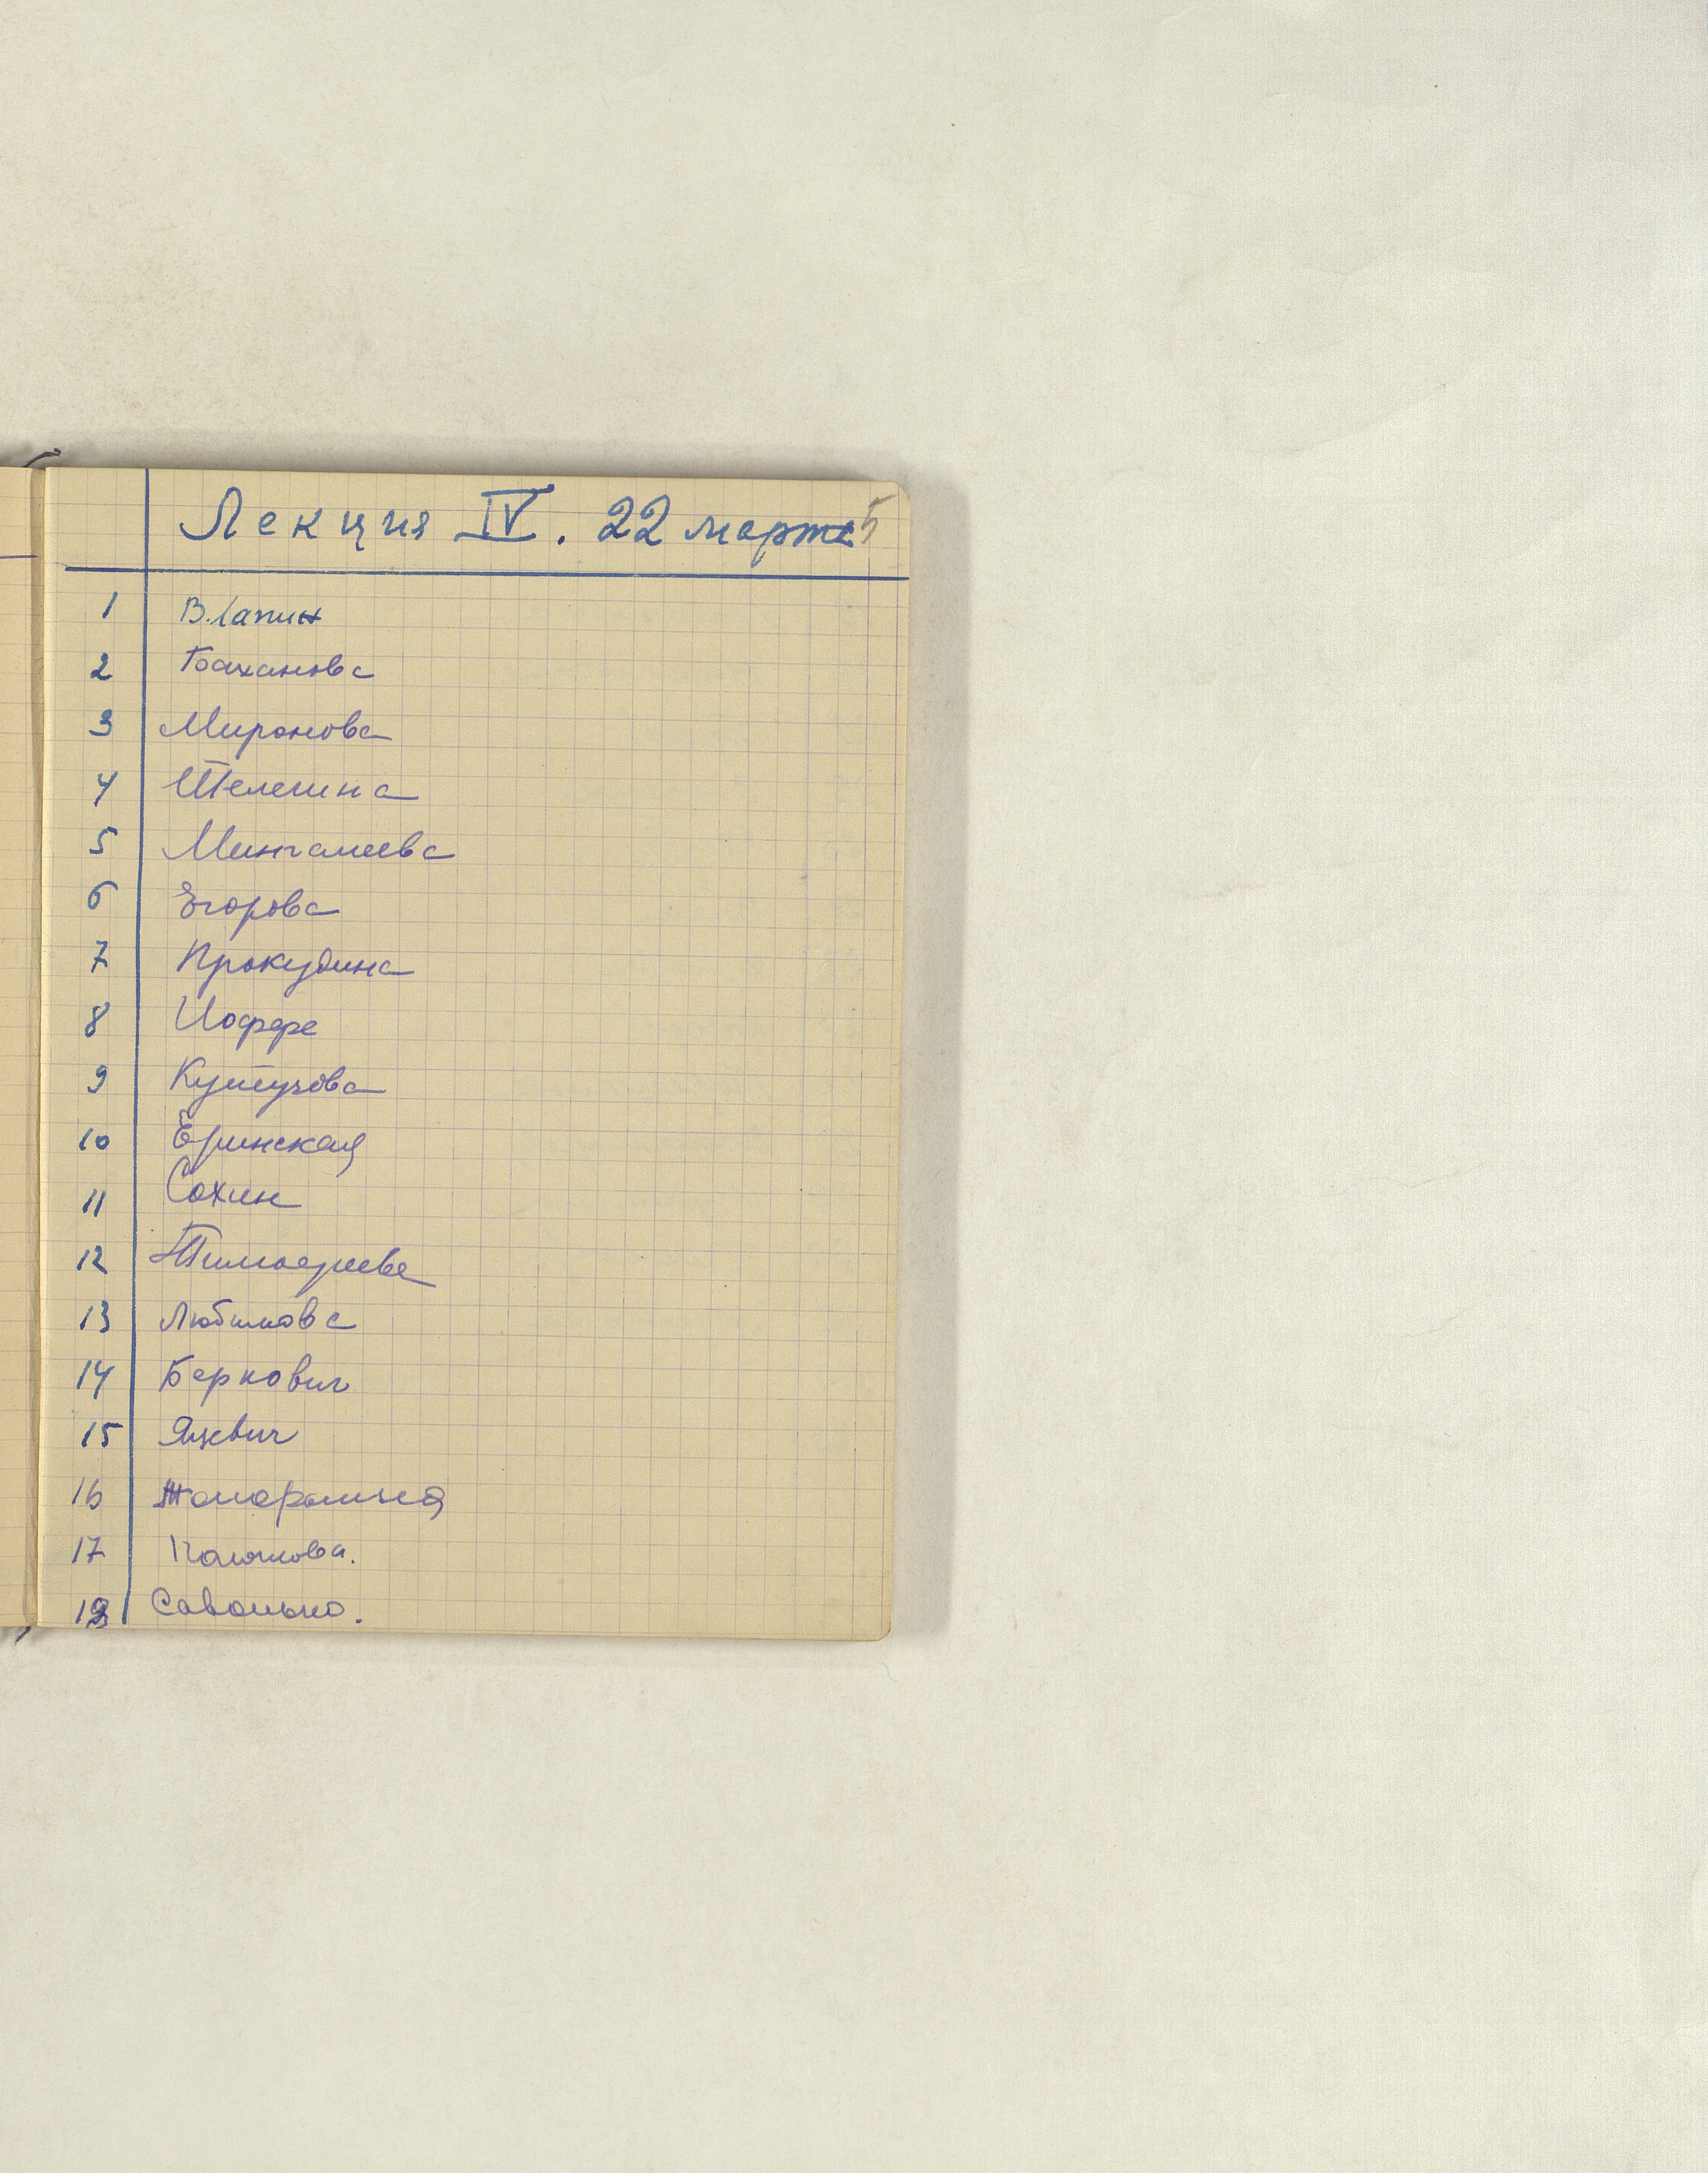 Лекция IV. 22 марта 5
1 В. Лапин
2 Баханова
3 Миронова
4 Телегина
5 Мингалеева
6 Егорова
7 Прокудина
8 Иоффе
9 Кутузова
10 Еринская
11 Сохин
12 Тимофеева
13 Любимова
14 Беркович
15 Яцкевич
16
17
18 Саванько.